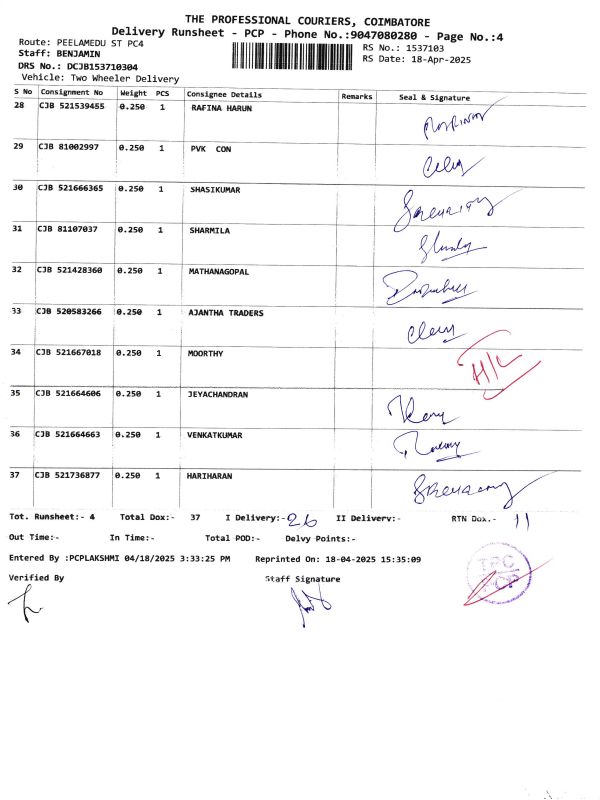 THE PROFESSIONAL COURIERS, COIMBATORE
Delivery Runsheet - PCP - Phone No.:9047080280 - Page No.:4
Route: PEELAMEDU ST PC4
Staff: BENJAMIN
DRS No.: DCJB153710304
Vehicle: Two Wheeler Delivery
RS No.: 1537103
RS Date: 18-Apr-2025
S No Consignment No Weight PCS Consignee Details Remarks Seal & Signature
28 CJB 521539455 0.250 1 RAFINA HARUN
29 CJB 81002997 0.250 1 PVK CON
30 CJB 521666365 0.250 1 SHASIKUMAR
31 CJB 81107037 0.250 1 SHARMILA
32 CJB 521428360 0.250 1 MATHANAGOPAL
33 CJB 520583266 0.250 1 AJANTHA TRADERS
34 CJB 521667018 0.250 1 MOORTHY H/L
35 CJB 521664606 0.250 1 JEYACHANDRAN
36 CJB 521664663 0.250 1 VENKATKUMAR
37 CJB 521736877 0.250 1 HARIHARAN
Tot. Runsheet:- 4 Total Dox:- 37 I Delivery:- 26 II Delivery:- RTN Dox.- 11
Out Time:- In Time:- Total POD:- Delvy Points:-
Entered By :PCPLAKSHMI 04/18/2025 3:33:25 PM Reprinted On: 18-04-2025 15:35:09
Verified By Staff Signature
TPC
PCP